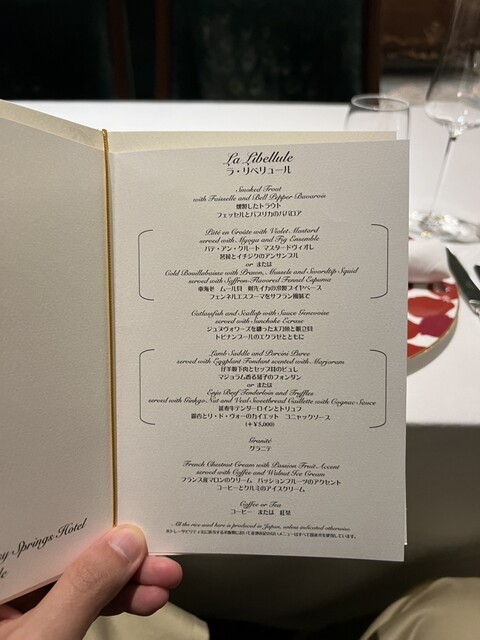 La Libellule
ラ・リベリュール
Smoked Trout
with Faisselle and Bell Pepper Bavarois
燻製したトラウト
フェッセルとパプリカのババロア
Pâté en Croûte with Violet Mustard
served with Myoga and Fig Ensemble
パテ・アン・クルート マスタードヴィオレ
茗荷とイチジクのアンサンブル
or または
Cold Bouillabaisse with Prawn, Mussels and Swordtip Squid
served with Saffron-Flavored Fennel Espuma
車海老 ムール貝 剣先イカの冷製ブイヤベース
フェンネルエスプーマをサフラン風味で
Cutlassfish and Scallop with Sauce Genevoise
served with Sunchoke Ecrase
ジュヌヴォワーズを纏った太刀魚と帆立貝
トピナンブールのエクラゼとともに
Lamb Saddle and Porcini Puree
served with Eggplant Fondant scented with Marjoram
仔羊鞍下肉とセップ茸のピュレ
マジョラム香る茄子のフォンダン
or または
Enju Beef Tenderloin and Truffles
served with Ginkgo Nut and Veal Sweetbread Caillette with Cognac Sauce
延寿牛テンダーロインとトリュフ
銀杏とリ・ド・ヴォーのカイエット コニャックソース
(+¥5,000)
Granité
グラニテ
French Chestnut Cream with Passion Fruit Accent
served with Coffee and Walnut Ice Cream
フランス産マロンのクリーム パッションフルーツのアクセント
コーヒーとクルミのアイスクリーム
Coffee or Tea
コーヒー または 紅茶
All the rice used here is produced in Japan, unless indicated otherwise.
Springs Hotel